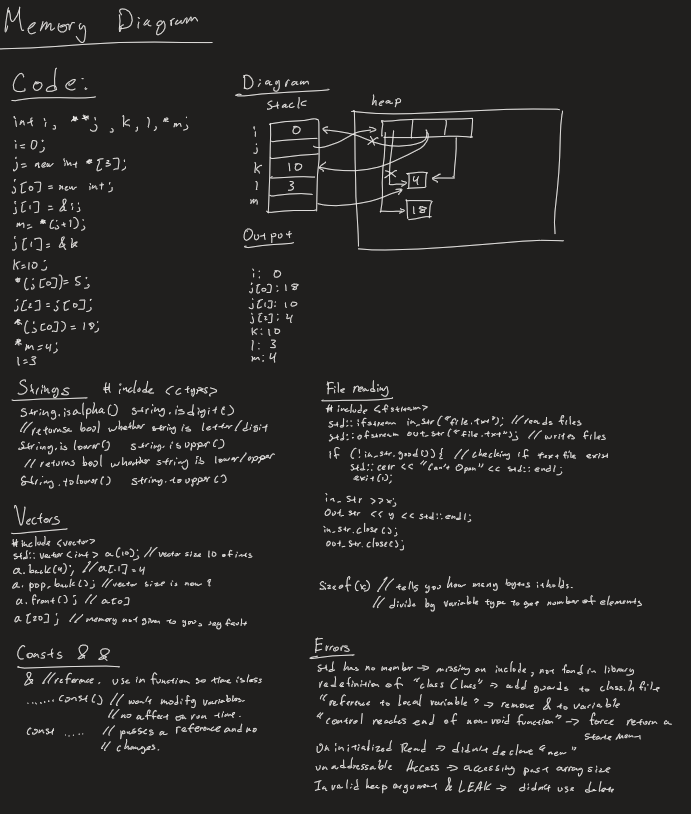 Memory Diagram
Code:
int i, **j, k, l, *m;
i=0;
j= new int *[3];
j[0]= new int;
j[1] = &i;
m= *(j+1);
j[1]= &k
k=10;
*(j[0])= 5;
j[2]=j[0];
*(j[0]) = 18;
*m=4;
l=3
Diagram
stack
heap
i 0
j
k 10
l 3
m
4
18
Output
i: 0
j[0]: 18
j[1]: 10
j[2]: 4
k: 10
l: 3
m: 4
Strings # include <ctypes>
String.isalpha() string.isdigit()
// returns a bool whether string is letter/digit
String.islower() string.isupper()
// returns bool whether string is lower/upper
String.tolower() string.toupper()
Vectors
#include <vector>
std::vector<int> a(10); // vector size 10 of ints
a.back(4); // a[-1]=4
a.pop_back(); // vector size is now 9
a.front(); // a[0]
a[20]; // memory not given to you, seg fault
Consts & &
& // reference. use in function so time is less
....... const() // wont modify variables.
// no affect on run time.
const ..... // passes a reference and no
// changes.
File reading
#include <fstream>
std::ifstream in_str("file.txt"); // reads files
std::ofstream out_str("file.txt"); // writes files
if (!in_str.good()){ // checking if text file exist
std::cerr << "Can't Open" << std::endl;
exit(1);
in_str >> x;
Out_str << y << std::endl;
in_str.close();
out_str.close();
Sizeof(x) // tells you how many bytes it holds.
// divide by variable type to get number of elements
Errors
Std has no member → missing an include, not found in library
redefinition of "class Class" → add guards to class.h file
"reference to local variable" → remove & to variable
"control reaches end of non-void function" → force return a
statement
Uninitialized Read → didnt declare "new"
unaddressable Access → accessing past array size
Invalid heap argument & LEAK → didnt use delete